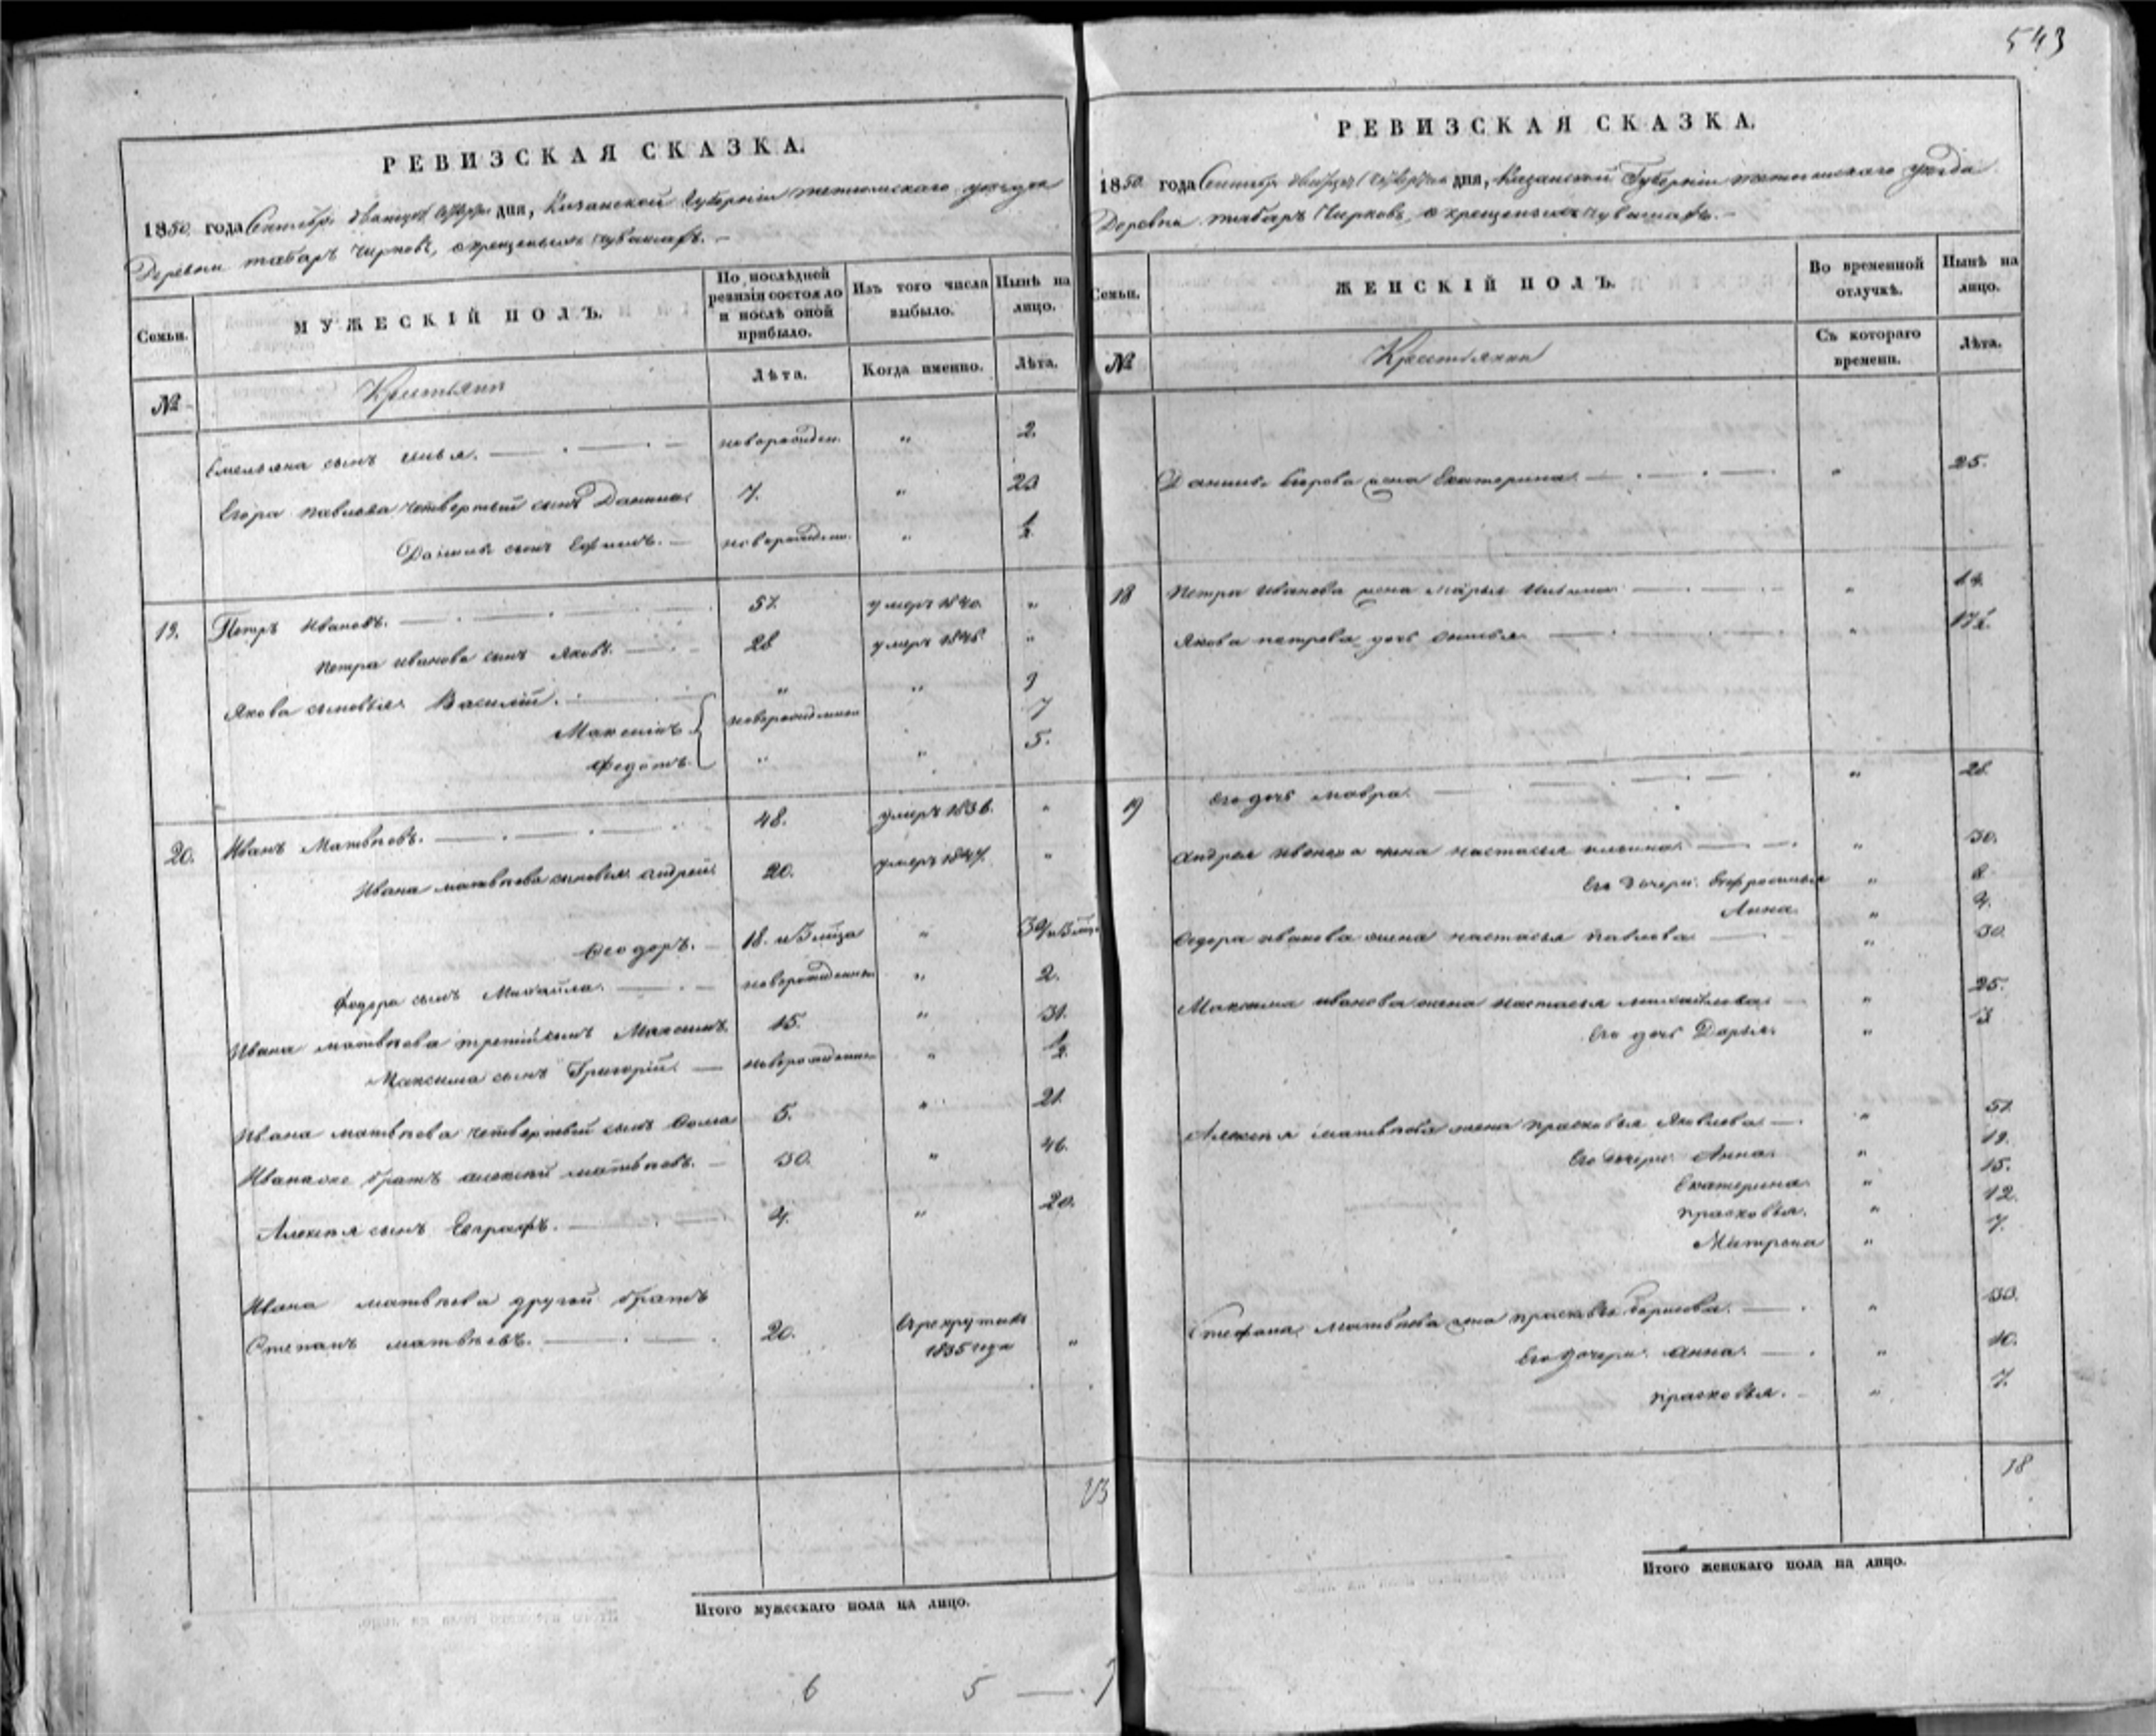 543
РЕВИЗСКАЯ СКАЗКА.
1850 года Сентября дня, Казанской Губернии тетюшскаго уезда
Деревни табарь Чирковъ, о крещеныхъ чувашахъ.
Семьи. МУЖЕСКІЙ ПОЛЪ. По послѣдней ревизіи состояло и послѣ оной прибыло. Изъ того числа выбыло. Нынѣ на лицо.
№ Крестьяне Лѣта. Когда именно. Лѣта.
Емельяна сынъ Илья. новорожден. " 2
Егора павлова четвертый сынъ Данила 7. " 23
Данилы сынъ Ефимъ. новорожден. " 1/2
19. Петръ Ивановъ. 57. умеръ 1840. "
Петра иванова сынъ Яковъ. 28 умеръ 1846. "
Якова сыновья Василій. " " 9
Максимъ новорожденные 7
Федотъ " " 5.
20. Иванъ Матвѣевъ. 48. умеръ 1836. "
Ивана матвѣева сыновья андрей 20. умеръ 1847. "
Феодоръ. 18. и 3 м-ца "
Федора сынъ Михайла. новорожденный " 2.
Ивана матвѣева третий сынъ Максимъ 15. " 31.
Максима сынъ Григорій. новорожденный " 1/2
Ивана матвѣева четвертый сынъ Фома 5. " 21.
Ивана же братъ алексѣй матвѣевъ. 30. " 46.
Алексѣя сынъ Евграфъ. 4. " 20.
Ивана матвѣева другой братъ
Степанъ матвѣевъ. 20. въ рекрутахъ 1835 года "
13
Итого мужескаго пола на лицо.
6 5 — 7
РЕВИЗСКАЯ СКАЗКА.
1850 года Сентября дня, Казанской Губерніи тетюшскаго уезда
Деревни табарь Чирковъ, о крещеныхъ чувашахъ.
Семьи. ЖЕНСКІЙ ПОЛЪ. Во временной отлучкѣ. Нынѣ на лицо.
№ Крестьянки Съ котораго времени. Лѣта.
Данилы Егорова жена Екатерина " 25.
18 Петра Иванова жена Марья Ильина " 64.
Якова петрова дочь " 17 1/2
19 Его дочь мавра. " 21.
Андрея Иванова жена настасья " 30.
Его дочери Ефросинья " 8
Анна " 4.
Федора иванова жена настасья павлова " 30
Максима иванова жена настасья михайлова " 25.
Его дочь Дарья " 3
Алексѣя матвѣева жена прасковья Яковлева " 51
Его дочери Анна. " 19.
Екатерина " 15.
прасковья. " 12.
Матрена " 7.
Стефана матвѣева жена прасковья борисова. " 33.
Его дочери анна. " 10.
прасковья. " 7.
18
Итого женскаго пола на лицо.